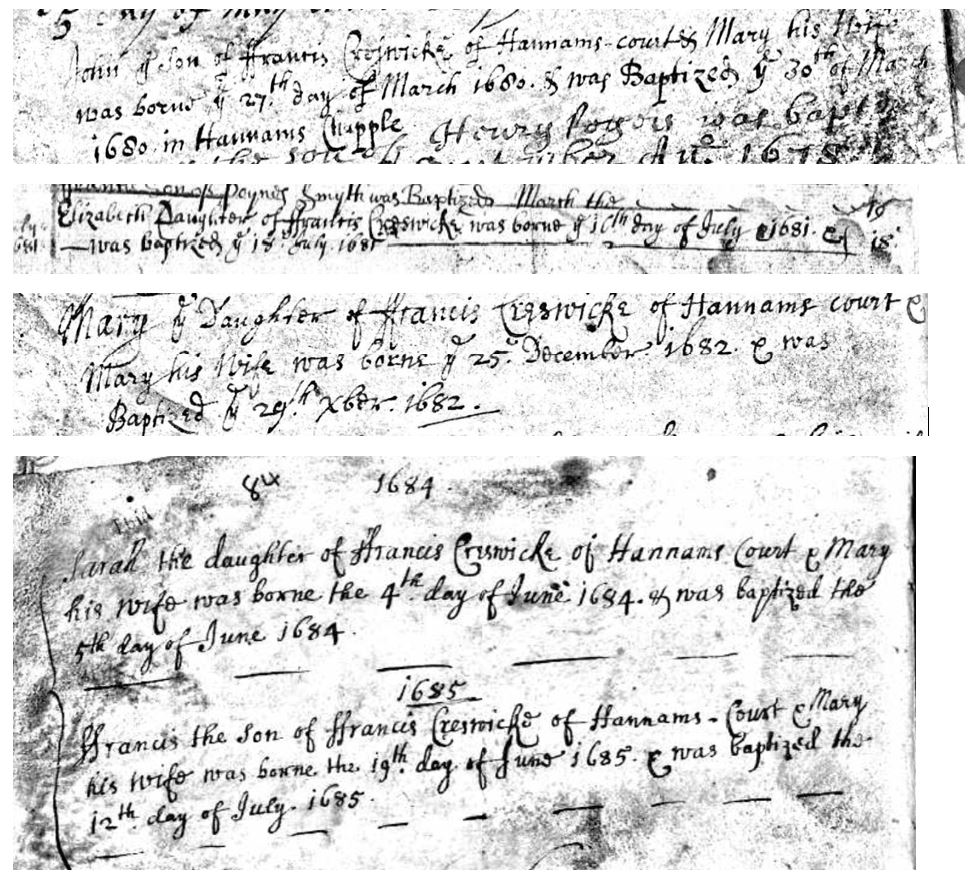 day of May
John ye Son of ffrancis Creswicke of Hannams-court & Mary his Wife
was borne ye 27th day of March 1680. & was Baptized ye 30th of March
1680 in Hannams Chapple
Henry Rogers was bapt
the son of
Son of Poynes Smyth was Baptized March the 18
Elizabeth Daughter of ffrancis Creswicke was borne ye 16th day of July 1681. &
was baptized ye 18 July 1681 18
Mary ye Daughter of ffrancis Creswicke of Hannams court &
Mary his Wife was borne ye 25. December. 1682. & was
Baptized ye 29th Xber. 1682.
84 1684
Sarah the daughter of ffrancis Creswicke of Hannams Court & Mary
his wife was borne the 4th day of June 1684. & was baptized the
5th day of June 1684.
1685
ffrancis the Son of ffrancis Creswicke of Hannams-Court & Mary
his wife was borne the 19th day of June 1685. & was baptized the
12th day of July. 1685.